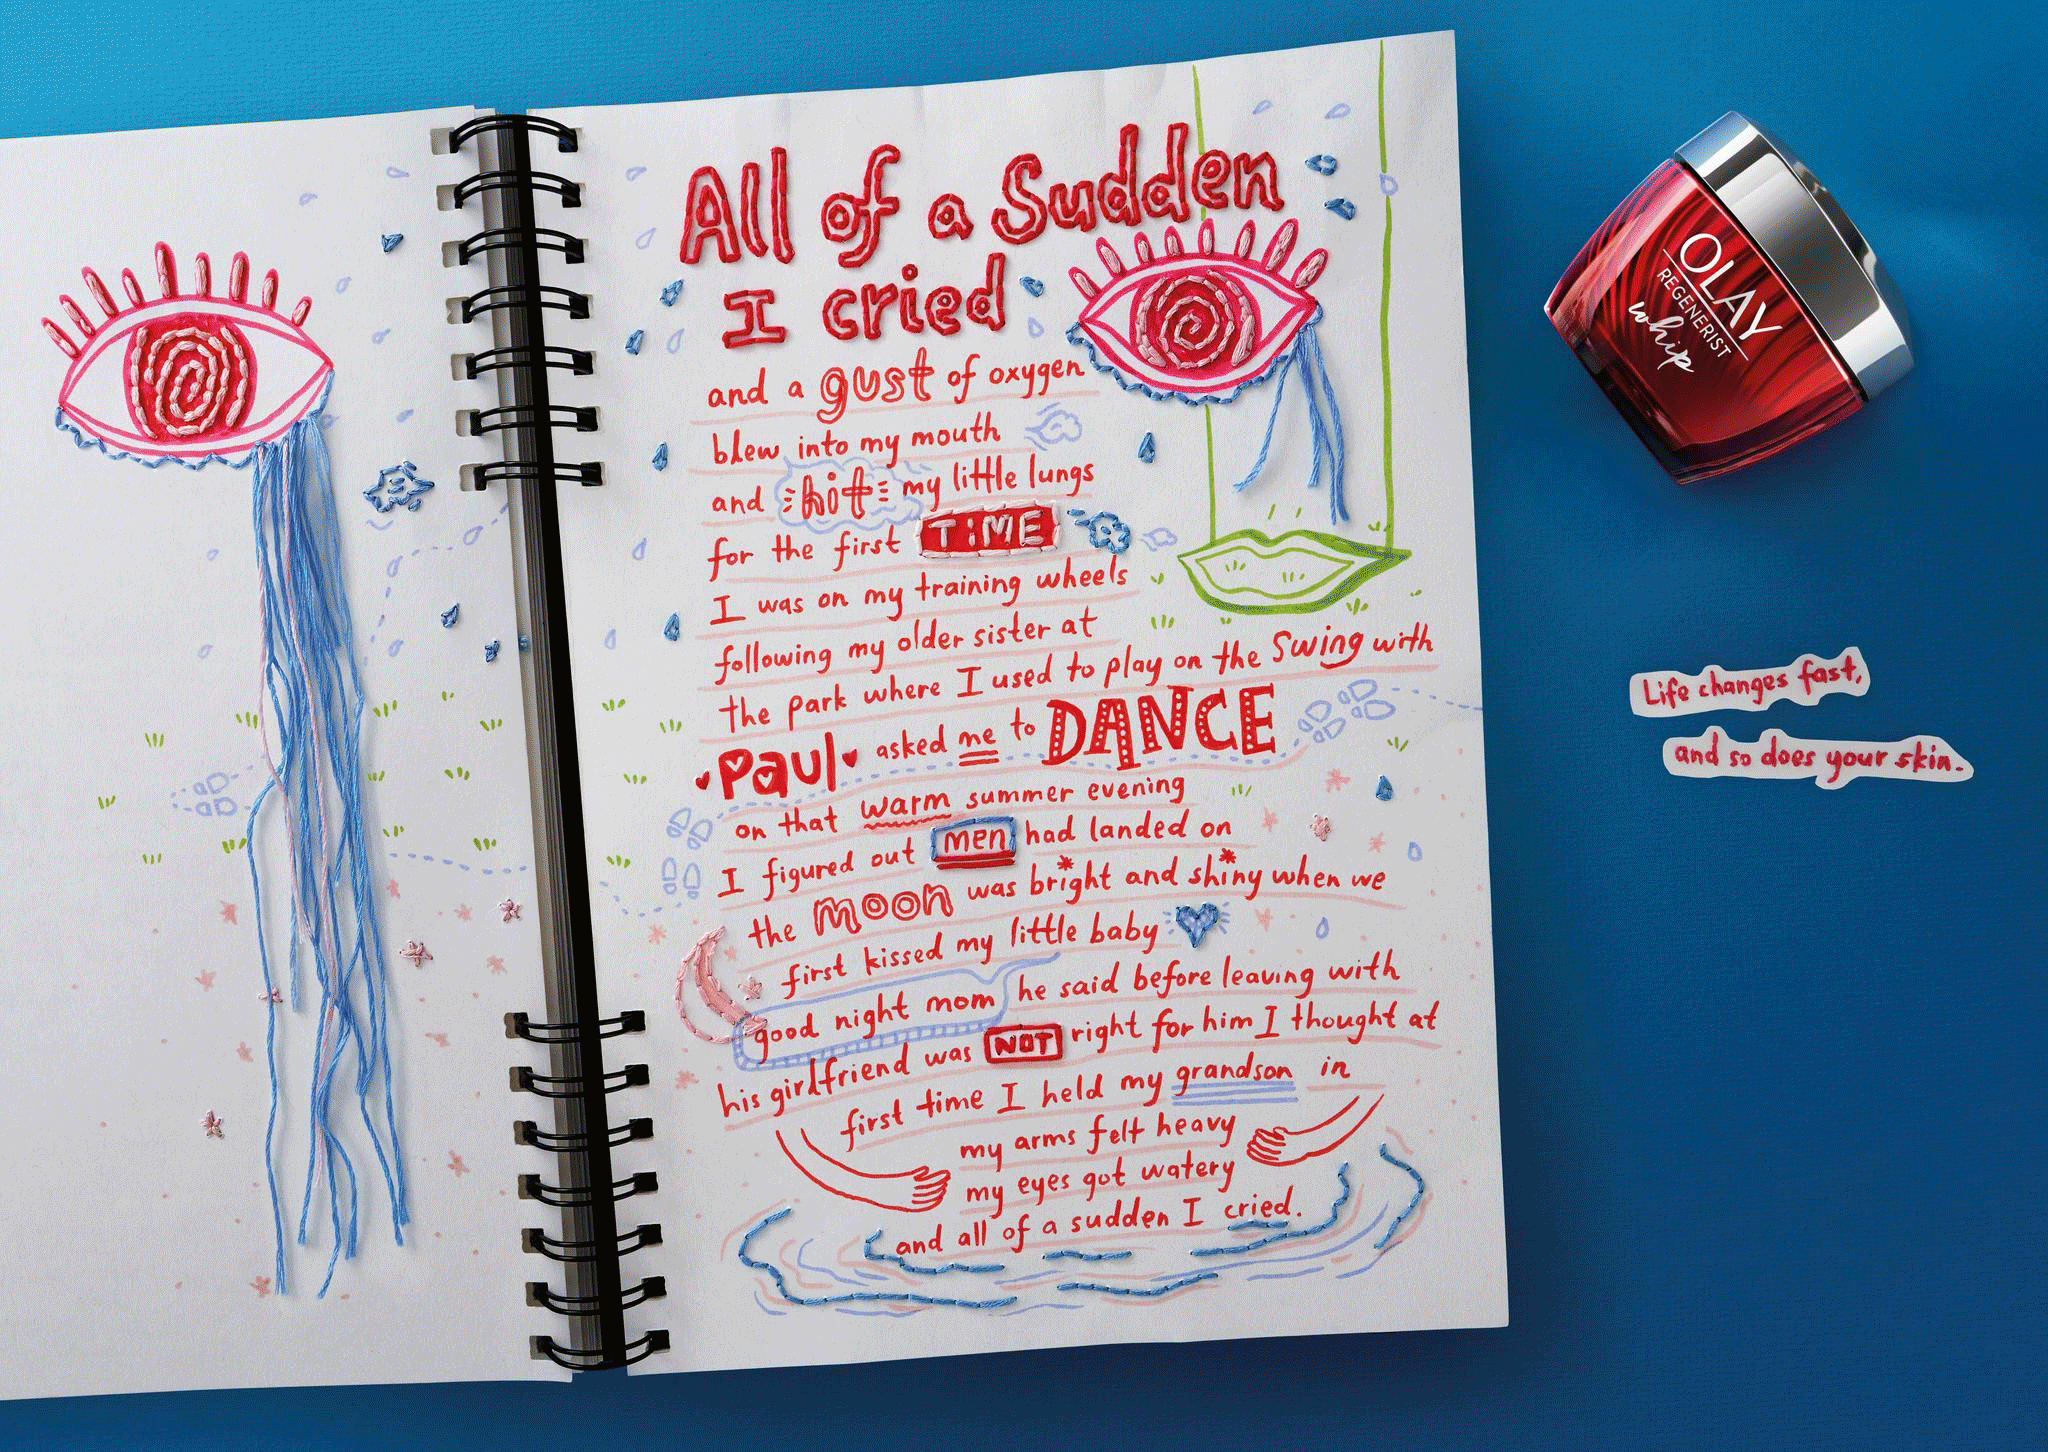 All of a Sudden
I cried
and a gust of oxygen
blew into my mouth
and hit my little lungs
for the first TIME
I was on my training wheels
following my older sister at
the park where I used to play on the Swing with
Paul asked me to DANCE
on that warm summer evening
I figured out men had landed on
the MOON was bright and shiny when we
first kissed my little baby
good night mom he said before leaving with
his girlfriend was NOT right for him I thought at
first time I held my grandson in
my arms felt heavy
my eyes got watery
and all of a sudden I cried.
OLAY
REGENERIST
whip
Life changes fast,
and so does your skin.